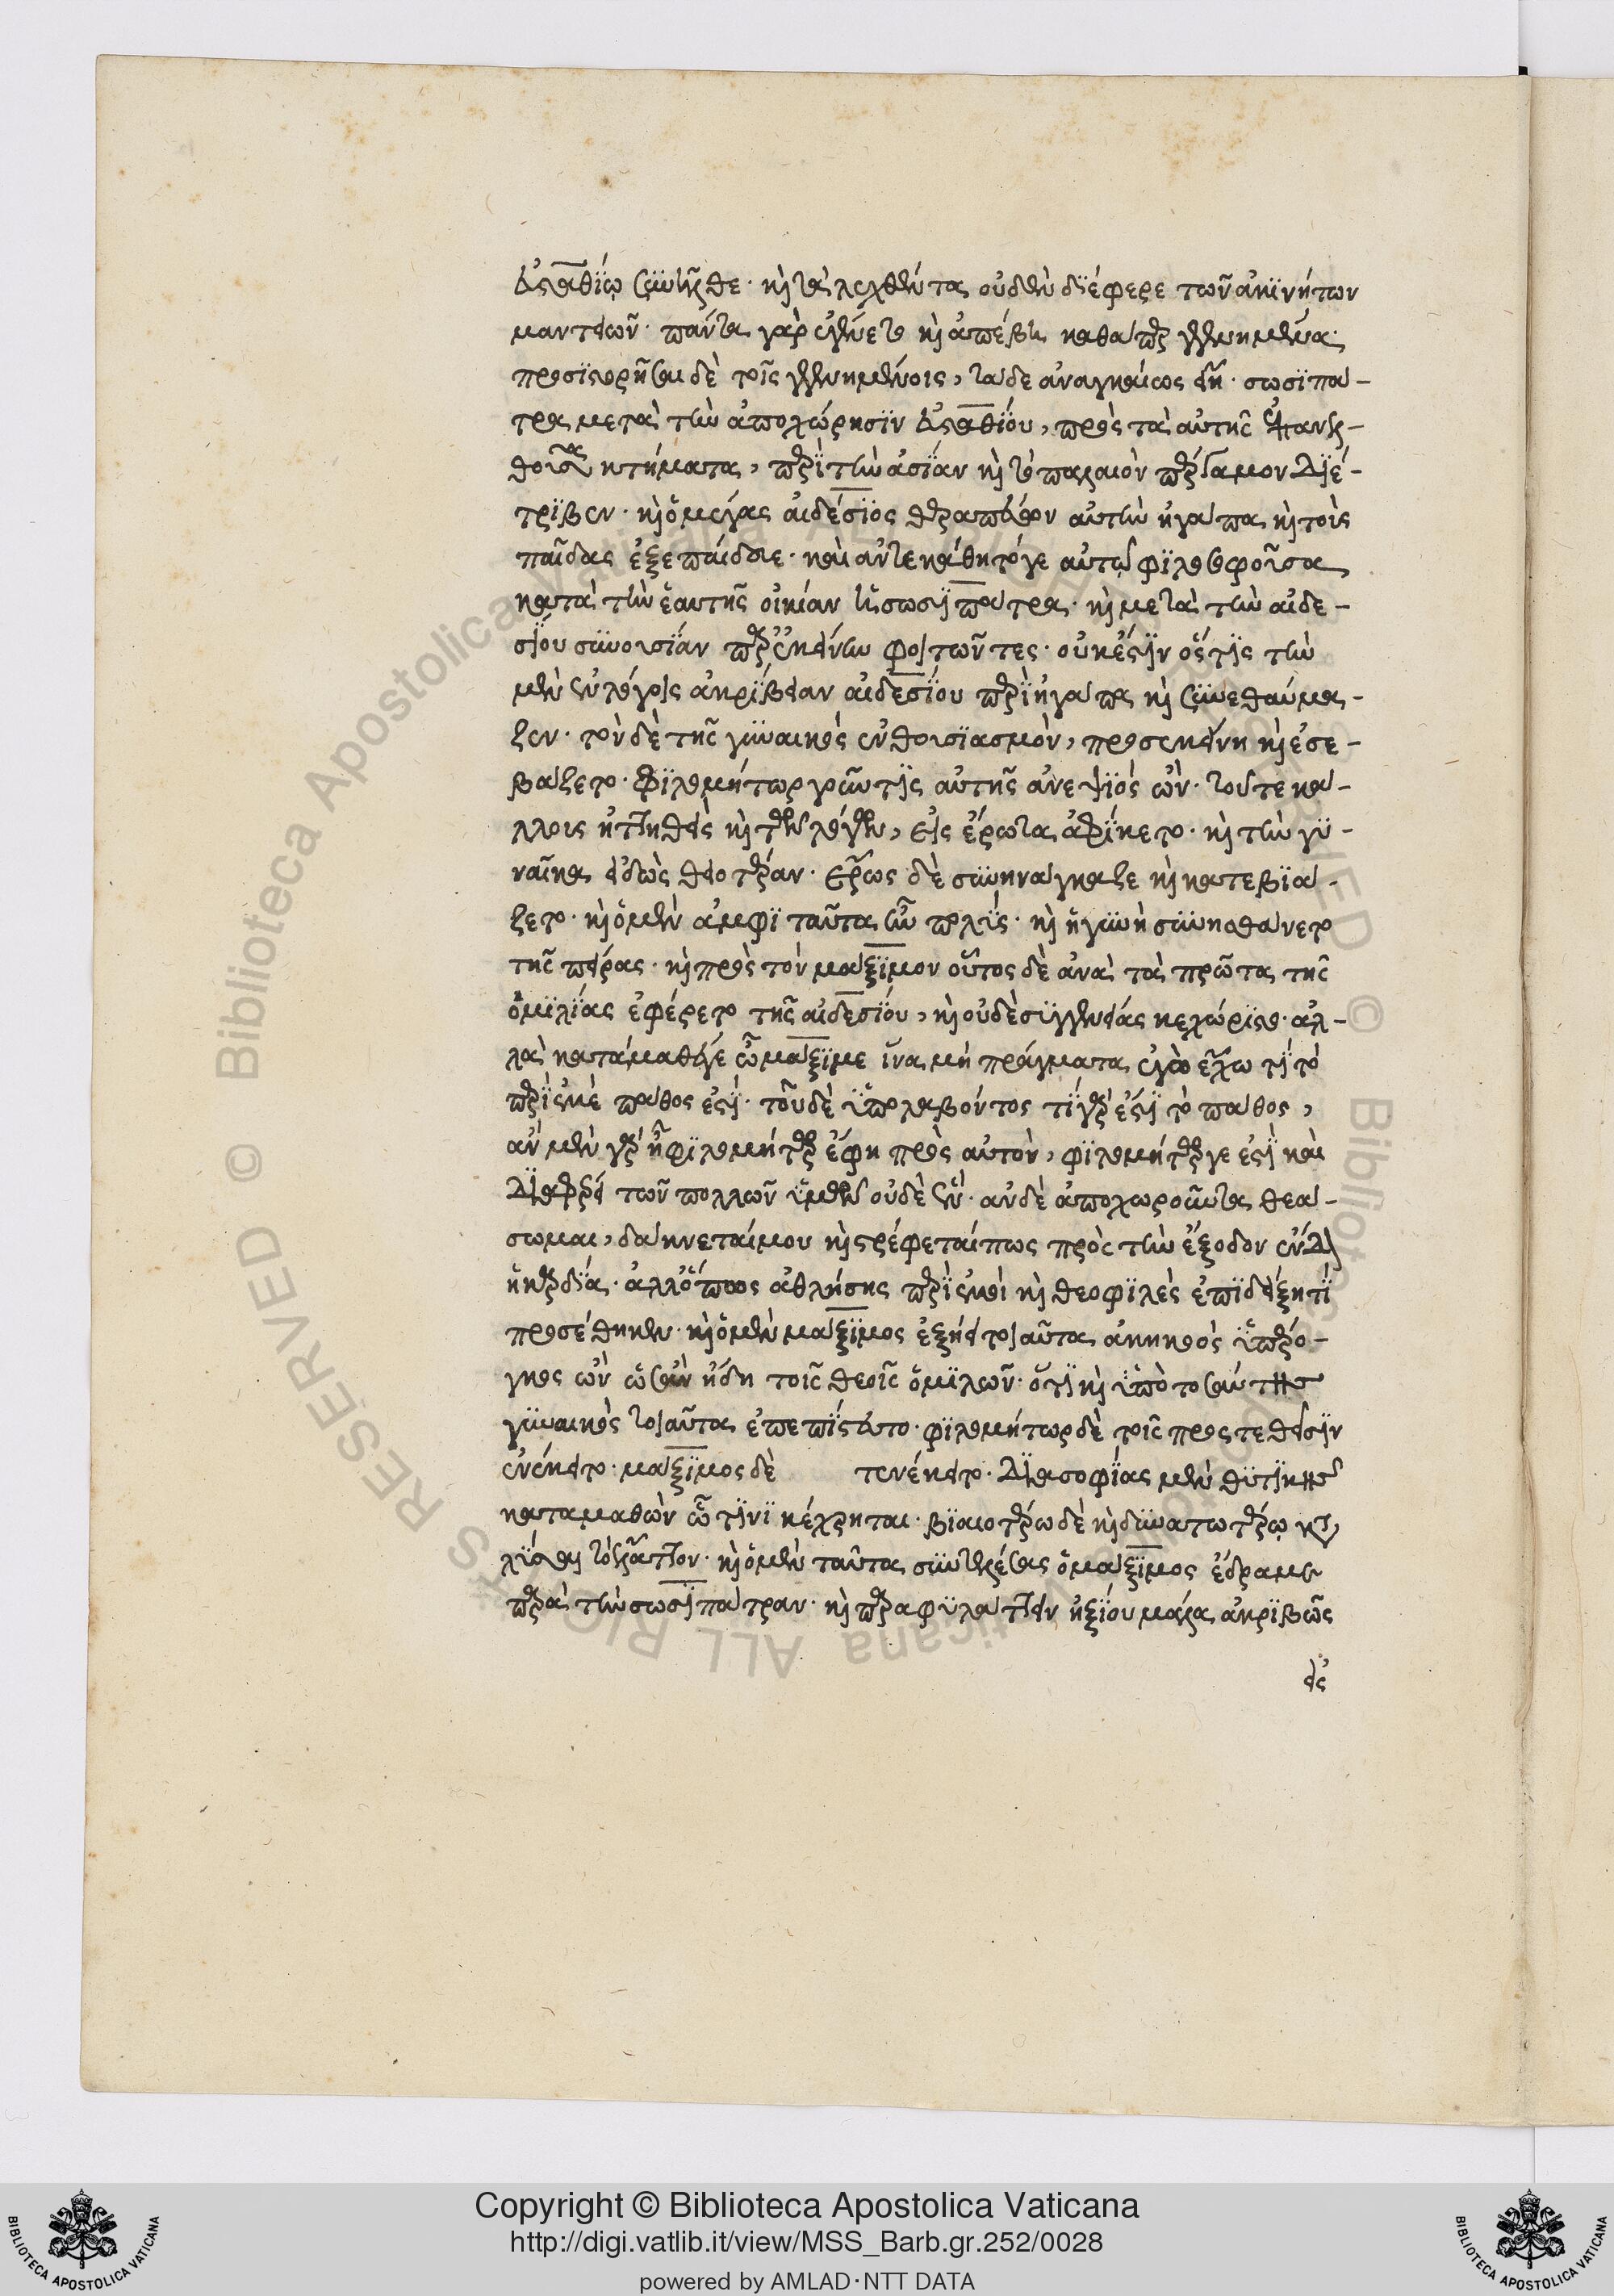 Εὐσταθίῳ συνῆλθε· καὶ τὰ λεχθέντα οὐδὲν διέφερε τῶν ἀκινήτων
μαντειῶν· πάντα γὰρ ἐγένετο καὶ ἀπέβη καθάπερ γεγενημένα·
προσιστορῆσαι δὲ τοῖς γεγενημένοις, τάδε ἀναγκαίως ἔχει· σωσιπά-
τρα μετὰ τὴν ἀποχώρησιν Εὐσταθίου, πρὸς τὰ αὐτῆς ἐπανελ-
θοῦσα κτήματα, περὶ τὴν ἀσίαν καὶ τὸ παλαιὸν πέργαμον διέ-
τριβεν· καὶ ὁ μέγας αἰδέσιος θεραπεύων αὐτὴν ἠγάπα καὶ τοὺς
παῖδας ἐξεπαίδευε· καὶ ἀντεκάθητό γε αὐτῷ φιλοσοφοῦσα
κατὰ τὴν ἑαυτῆς οἰκίαν ἡ σωσιπάτρα· καὶ μετὰ τὴν αἰδε-
σίου συνουσίαν παρ' ἐκείνην φοιτῶντες· οὐκ ἔστιν ὅστις τὴν
μὲν ἐν λόγοις ἀκρίβειαν αἰδεσίου περιηγάπα καὶ συνεθαύμα-
ζεν· τὸν δὲ τῆς γυναικὸς ἐνθουσιασμὸν, προσεκύνει καὶ ἐσε-
βάζετο· Φιλομήτωρ γοῦν τις αὐτῆς ἀνεψιὸς ὢν· τοῦ τε κά-
λλους ἡττηθεὶς καὶ τῶν λόγων, εἰς ἔρωτα ἀφίκετο· καὶ τὴν γυ-
ναῖκα εἰδὼς θειοτέραν· ἔρως δὲ συνηνάγκαζε καὶ κατεβιά-
ζετο· καὶ ὁ μὲν ἀμφὶ ταῦτα ἦν πολὺς· καὶ ἡ γυνὴ συνῃσθάνετο
τῆς πείρας· καὶ πρὸς τὸν μάξιμον οὗτος δὲ ἀνὰ τὰ πρῶτα τῆς
ὁμιλίας ἐφέρετο τῆς αἰδεσίου, καὶ οὐδὲ συγγενείας κεχώριστο· ἀλ-
λὰ κατάμαθέ γε ὦ μάξιμε ἵνα μὴ πράγματα ἐγὼ ἔχω τί τὸ
περὶ ἐμὲ πάθος ἐστί· τοῦ δὲ ὑπολαβόντος τί γάρ ἐστι τὸ πάθος,
ἂν μὲν γὰρ ᾖ φιλομήτωρ ἔφη πρὸς αὐτὸν, φιλομήτωρ γε ἐστὶ καὶ
διαφέρει τῶν πολλῶν ἡμῶν οὐδὲ ἕν· ἂν δὲ ἀποχωροῦντα θεά-
σωμαι, δάκνεταί μου καὶ στρέφεταί πως πρὸς τὴν ἔξοδον ἔνδ
ἡ καρδία· ἀλλ' ὅπως ἀθλήσῃς περὶ ἐμοὶ καὶ θεοφιλὲς ἐπιδείξῃ τί
προσέθηκεν· καὶ ὁ μὲν μάξιμος ἐξῄει τοιαῦτα ἀκηκοὼς ὑπέρο-
γκος ὢν ὡσὰν ἤδη τοῖς θεοῖς ὁμιλῶν· ὅτι καὶ ὑπὸ τοσαύτης
γυναικὸς τοιαῦτα ἐπεπίστευτο· φιλομήτωρ δὲ τοῖς προστεθεῖσιν
ἐνέκειτο· μάξιμος δὲ τενέκειτο· διὰ σοφίας μὲν θυτικῆς
καταμαθὼν ᾧ τινι κέχρηται· βιαιοτέρῳ δὲ καὶ δυνατωτέρῳ κα
λῦσαι τὸ ἔλαττον· καὶ ὁ μὲν ταῦτα συντελέσας ὁ μάξιμος ἔδραμε
παρὰ τὴν σωσιπάτραν· καὶ παραφυλάττειν ἠξίου μάλα ἀκριβῶς
εἰ
Copyright © Biblioteca Apostolica Vaticana
http://digi.vatlib.it/view/MSS_Barb.gr.252/0028
powered by AMLAD·NTT DATA
BIBLIOTECA APOSTOLICA VATICANA
BIBLIOTECA APOSTOLICA VATICANA